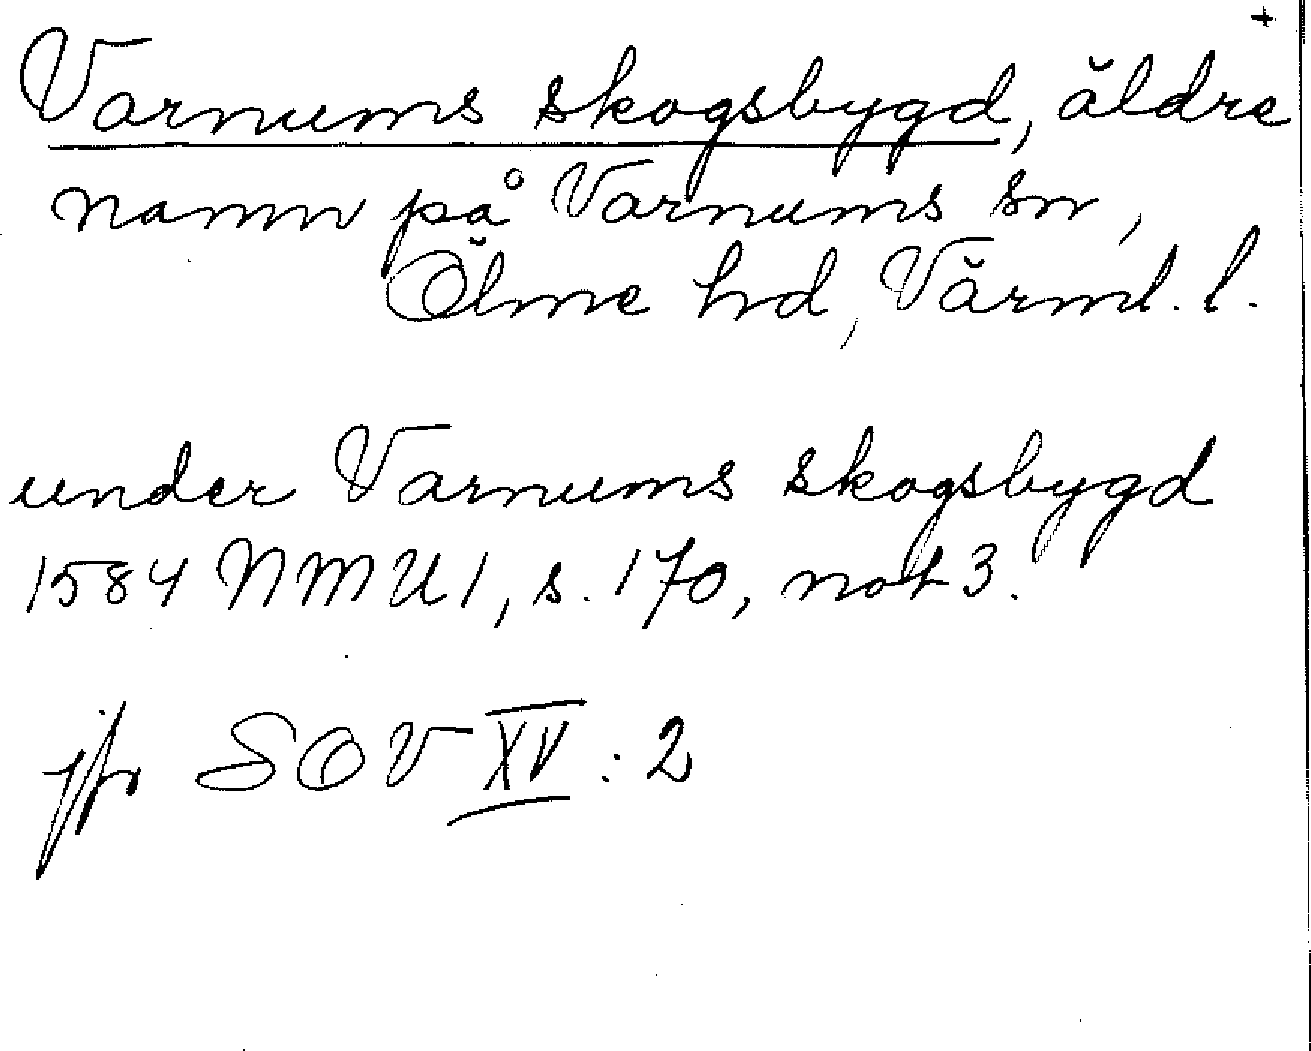 +
Varnums skogsbygd, äldre
namn på Varnums sn,
Ölme hd, Värml. l.
under Varnums skogsbygd
1584 NMU 1, s. 170, not 3.
jfr SOV XV : 2